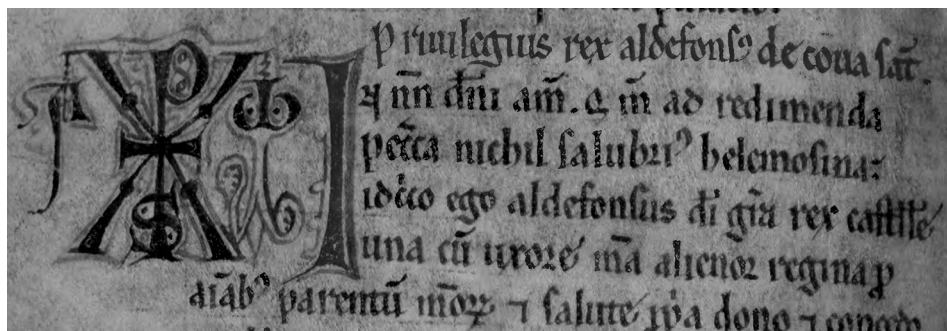 Priuilegius rex aldefonsꝰ de coua sc̃t.
I
⁊ nñ dñi am̃. Q m̃ ad redimenda
pecc̃a nichil salubriꝰ helemosina:
idcĩco ego aldefonsus di gr̃a rex castelle
una cũ uxore mea alienor regina ꝓ
aĩabꝰ parentũ meoꝝ ⁊ salute ꝓpa dono ⁊ concedo